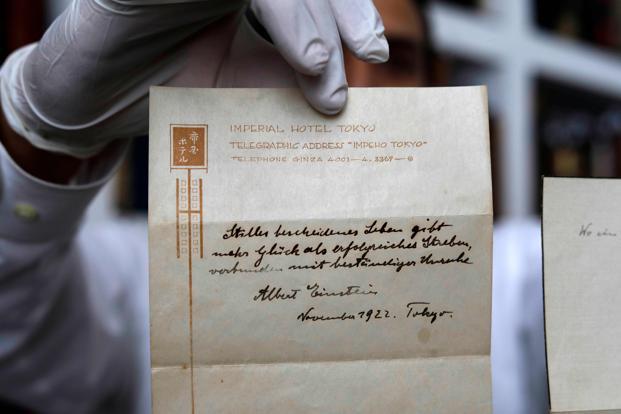 IMPERIAL HOTEL TOKYO
TELEGRAPHIC ADDRESS "IMPEHO TOKYO"
TELEPHONE GINZA 4001—4. 3367—8
帝国
ホテル
Stilles bescheidenes Leben gibt
mehr Glück als erfolgreiches Streben,
verbunden mit beständiger Unruhe
Albert Einstein
November 1922. Tokyo.
Wo ein